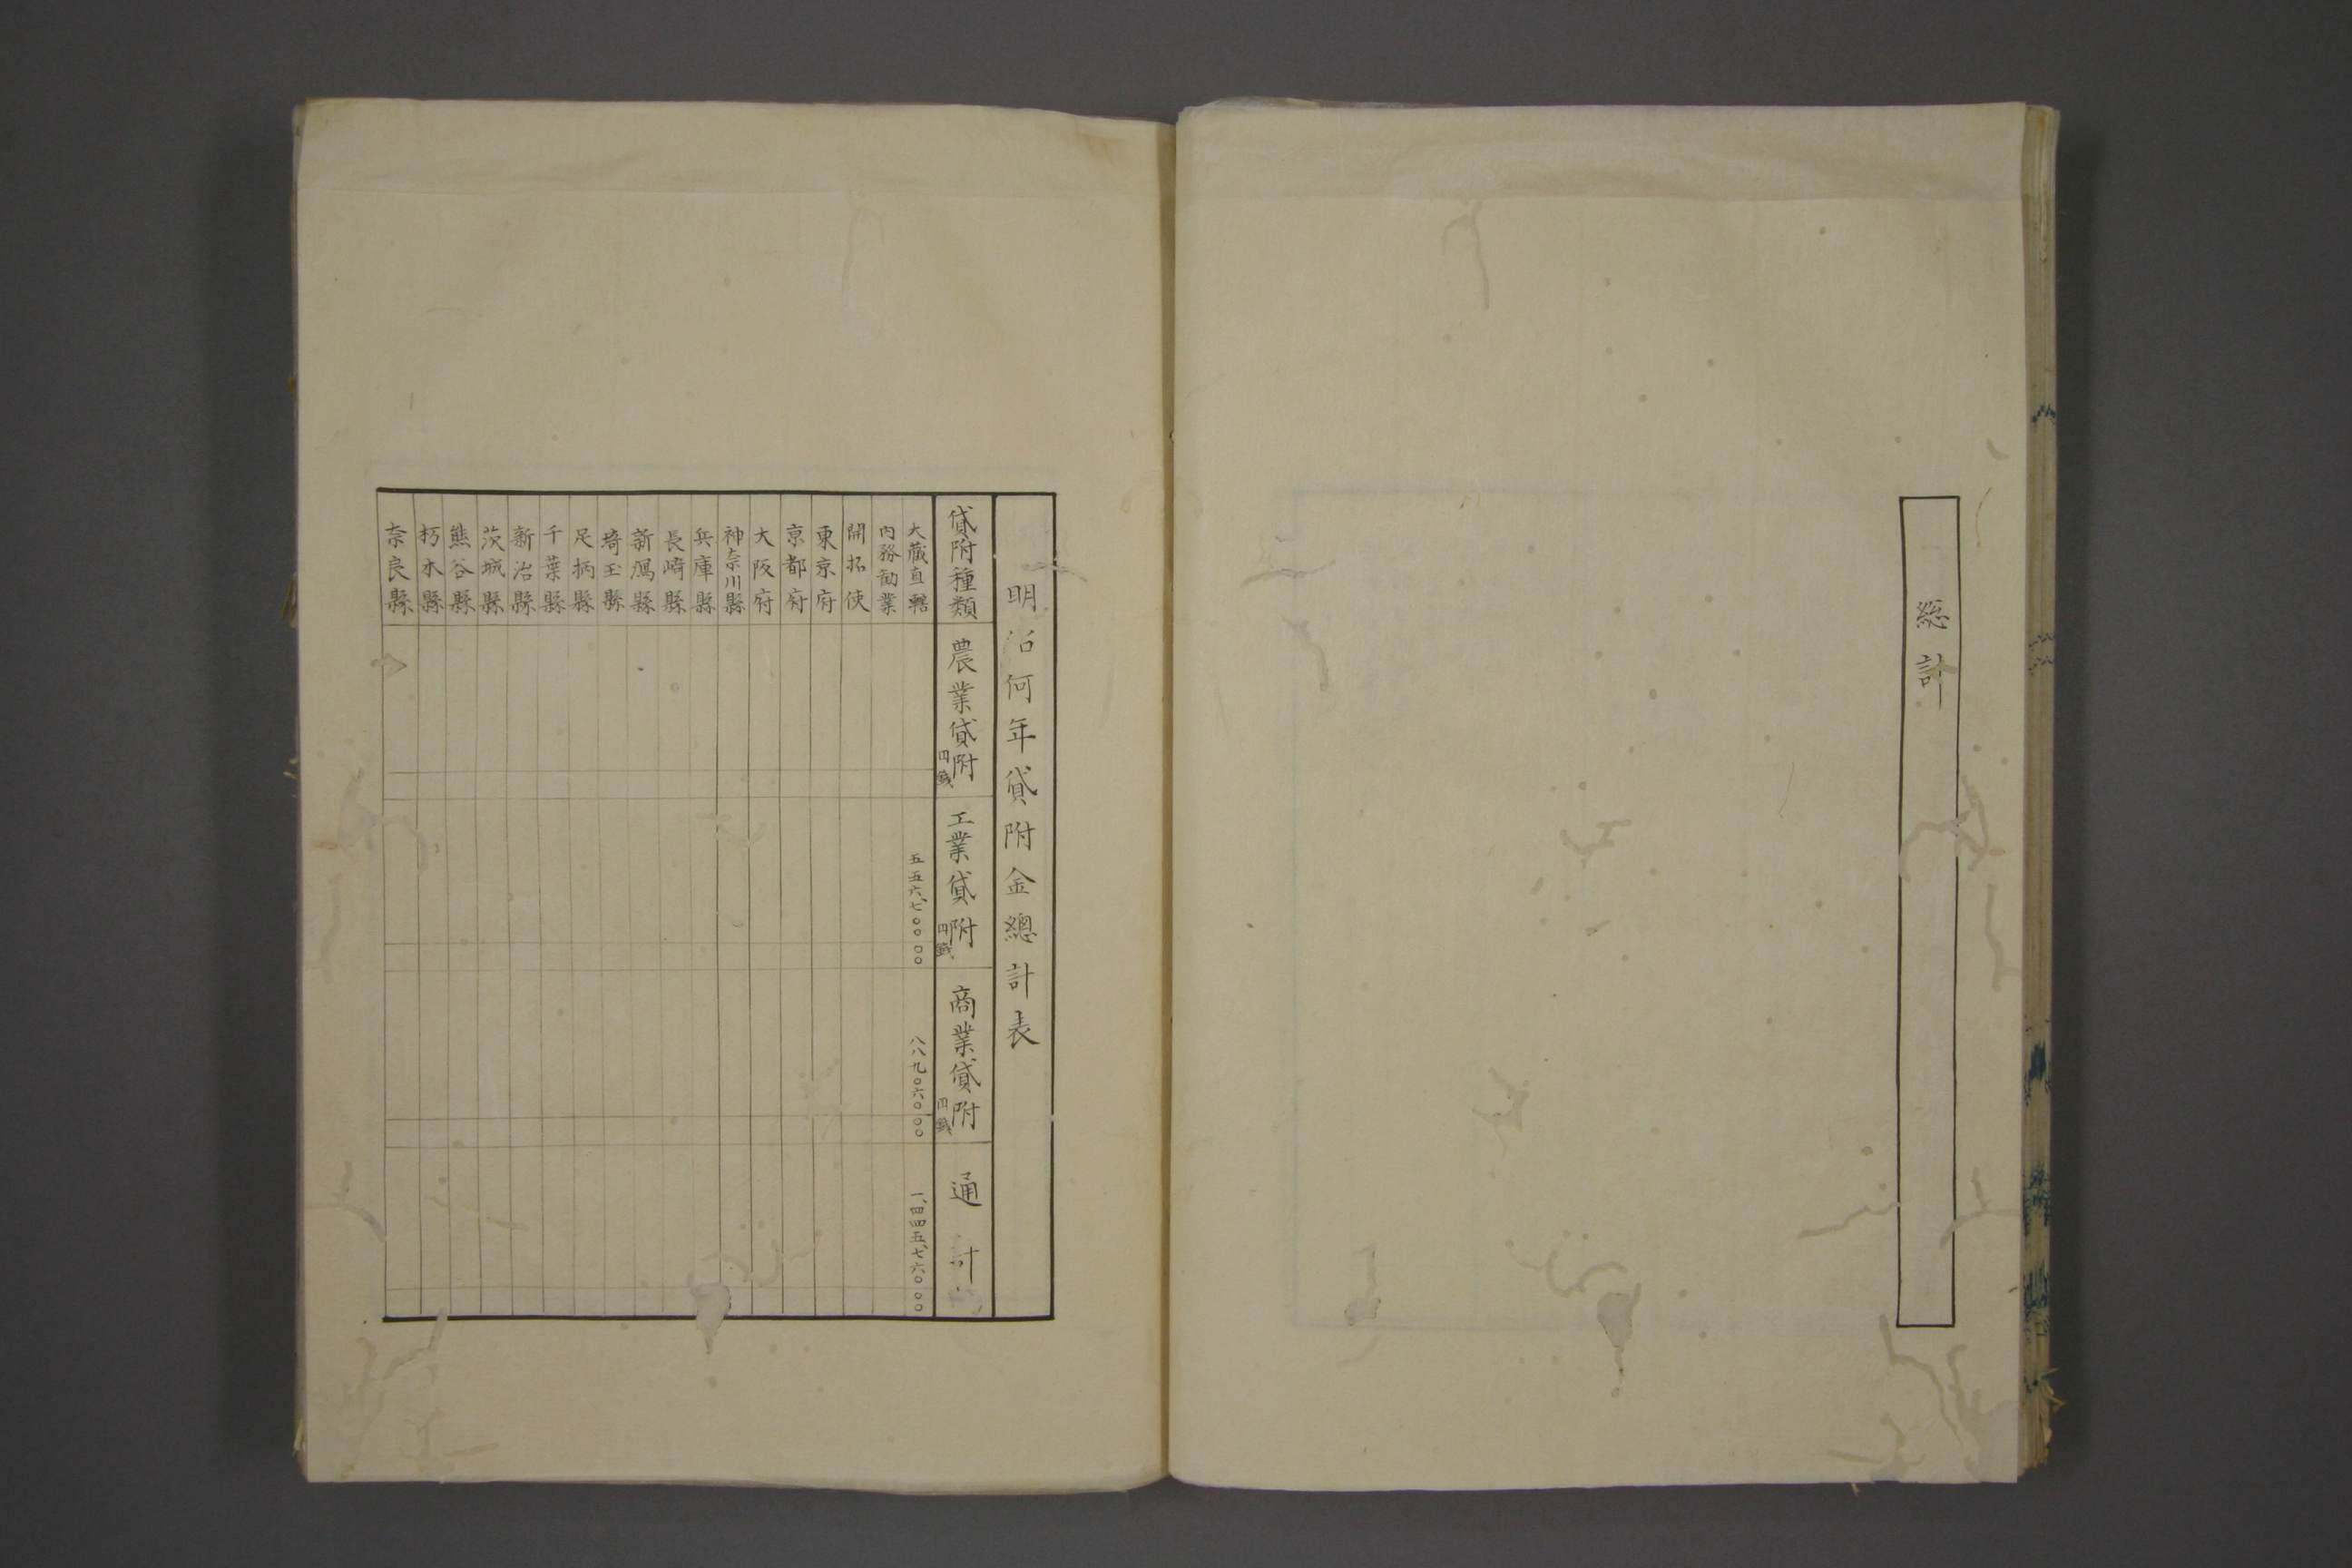 総計
明治何年貸附金總計表
貸附種類
農業貸附 円 錢
工業貸附 円 錢
商業貸附 円 錢
通計
大藏直轄
五五六、七〇〇〇〇
八八九〇六〇〇〇
一、四四五、七六〇〇〇
内務勧業
開拓使
東京府
京都府
大阪府
神奈川縣
兵庫縣
長崎縣
新潟縣
埼玉縣
足柄縣
千葉縣
新治縣
茨城縣
熊谷縣
杤木縣
奈良縣